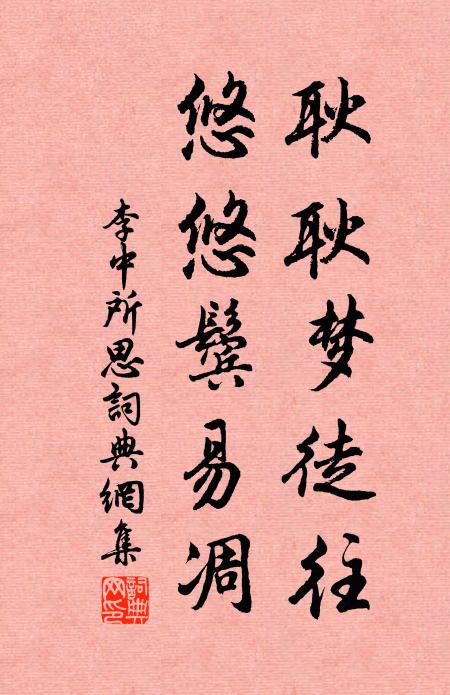 耿耿梦徒往
悠悠鬓易凋
李中所思詞典網集
詞典
网印